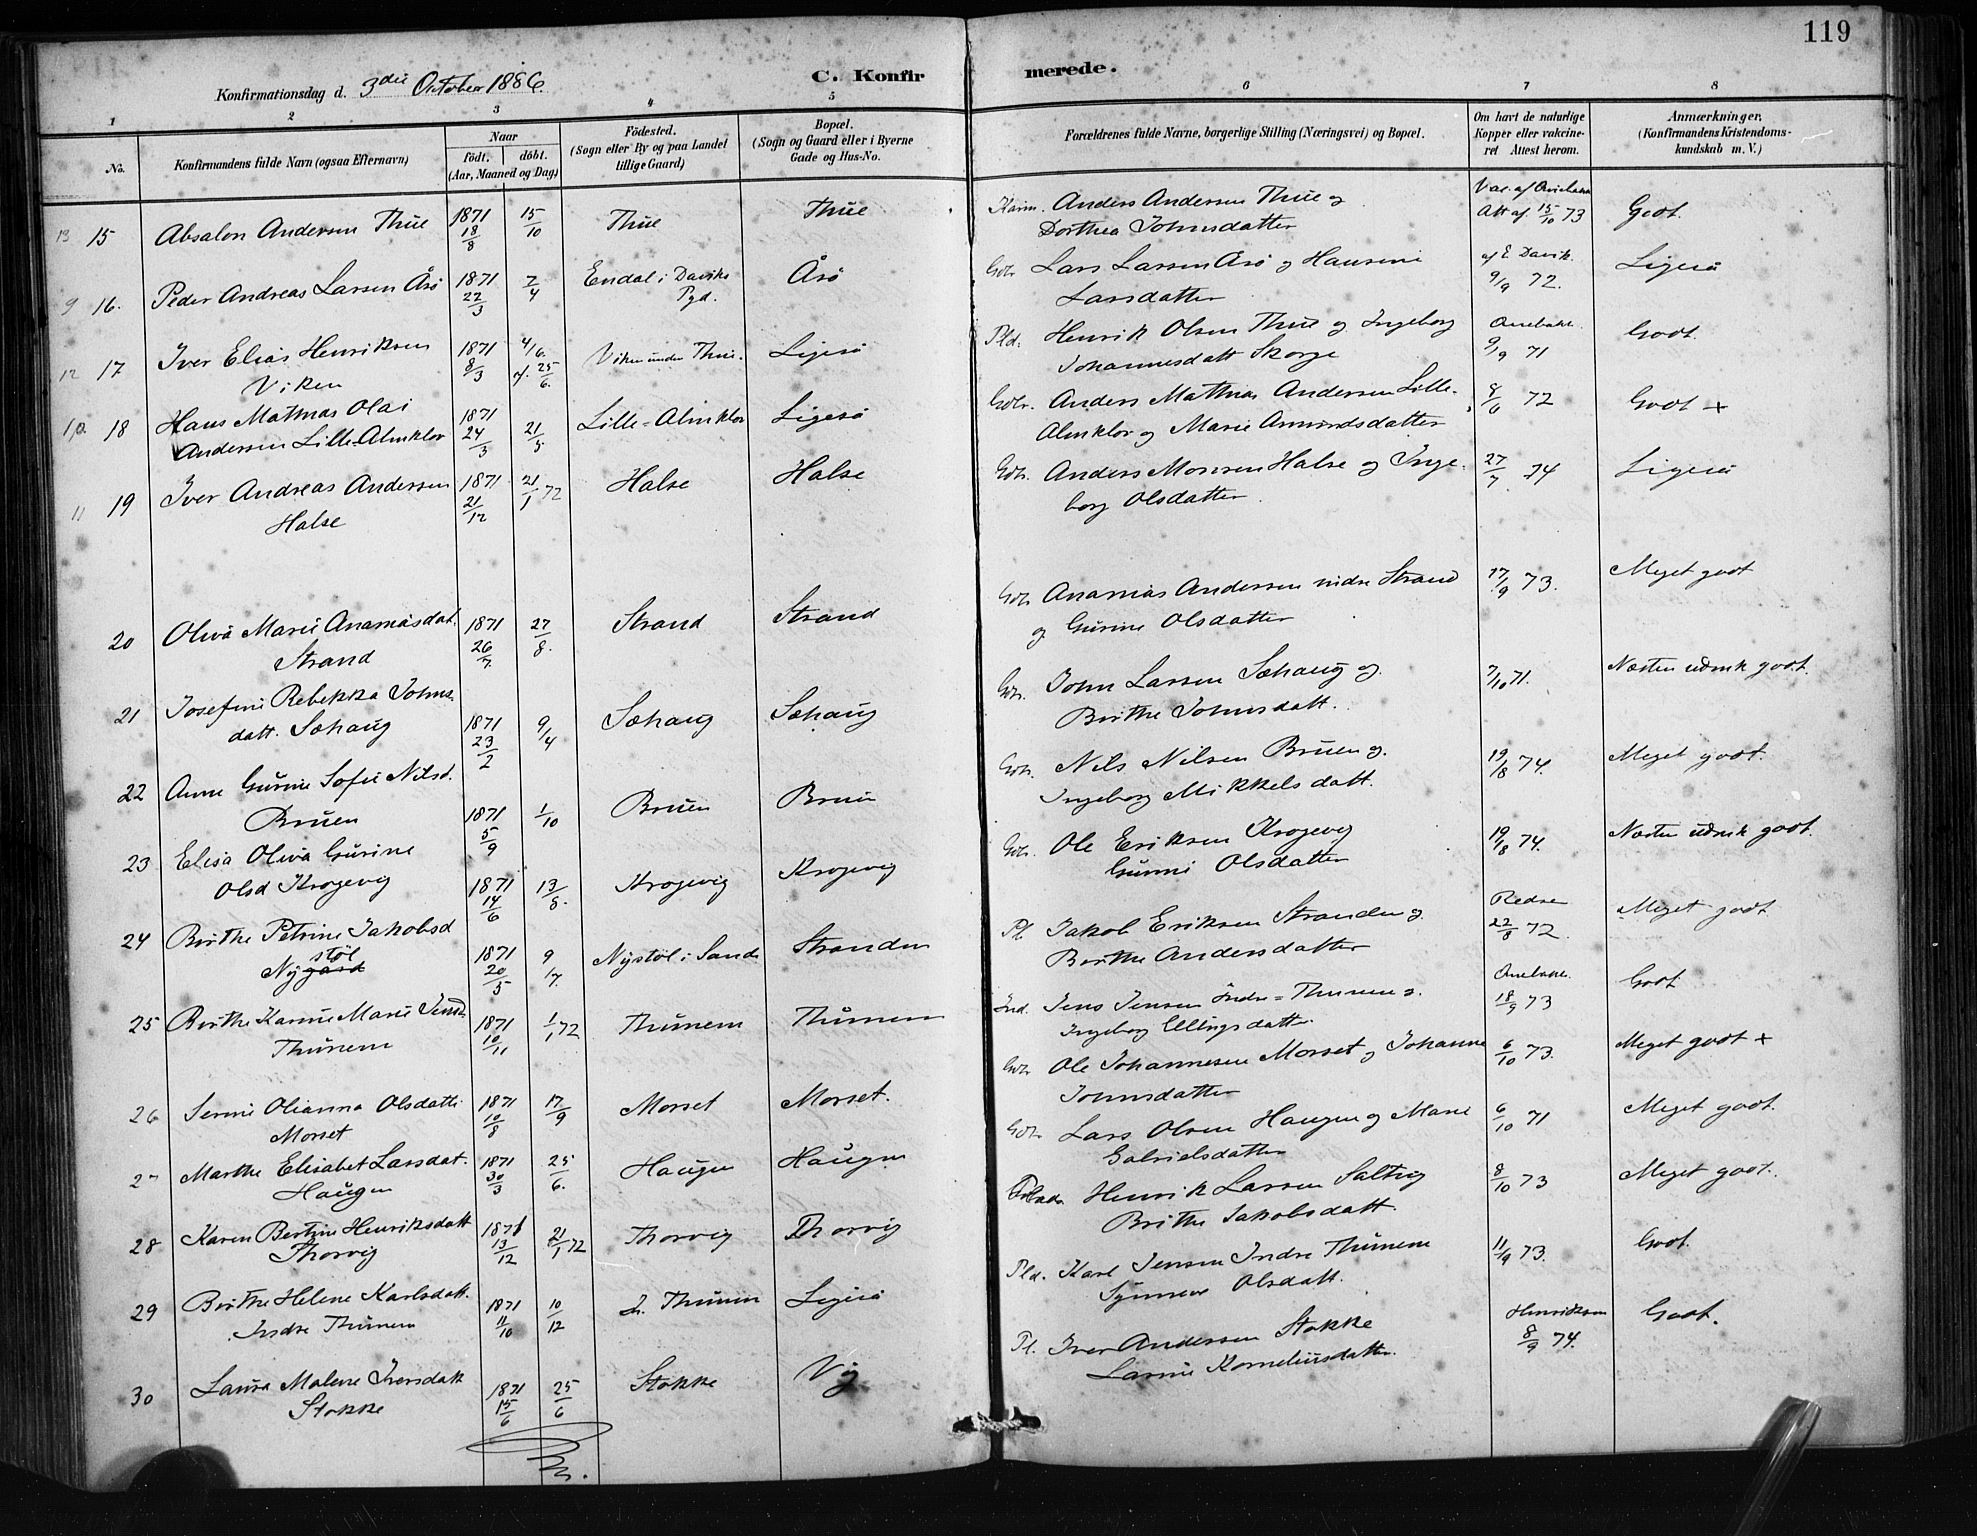 119
Konfirmationsdag d. 3die October 1886.
C. Konfirmerede.
1 2 3 4 5 6 7 8
No.
Konfirmandens fulde Navn (ogsaa Efternavn)
Naar
födt. döbt.
(Aar, Maaned og Dag)
Födested.
(Sogn eller By og paa Landet
tillige Gaard)
Bopæl.
(Sogn og Gaard eller i Byerne
Gade og Hus-No.
Forældrenes fulde Navne, borgerlige Stilling (Næringsvei) og Bopæl.
Om havt de naturlige
Kopper eller vakcine-
ret Attest herom.
Anmærkninger.
(Konfirmandens Kristendoms-
kundskab m. V.)
13 15 Absalon Andersen Thue 1871 18/8 15/10 Thue Thue Anders Andersen Thue og
Dorthea Johnsdatter Att af 15/10 73 Godt.
9 16. Peder Andreas Larsen Årö 1871 22/3 2/4 Endal i Daviks
Pgd. Årö Gbr Lars Larsen Årö og Hansine
Larsdatter af E Davik. 9/9 72. Ligeså
12 17 Iver Elias Henriksen
Viken 1871 8/3 4/6. 25/6. Viken under Thue. Ligeså Pld. Henrik Olsen Thue og Ingeborg
Johannesdatt Skorge 9/9 71 Godt.
10. 18 Hans Mathias Olai
Andersen Lille-Almklov 1871 24/3 21/5 Lille-Almklov Ligeså Gbr. Anders Mathias Andersen Lille-
Almklov og Marie Amundsdatter 8/6 72 Godt +
11 19 Iver Andreas Andersen
Halse 1871 21/12 21/1 72 Halse Halse Gbr. Anders Monsen Halse og Inge-
borg Olsdatter 27/7 74 Ligeså
20 Oliva Marie Ananiasdat.
Strand 1871 26/7. 27/8. Strand Strand Gbr Ananias Andersen indre Strand
og Gurine Olsdatter 17/9 73. Meget godt
21 Josefine Rebekka Johns-
datt. Sæhaug 1871 23/2 9/4 Sæhaug Sæhaug Gbr. John Larsen Sæhaug og
Birthe Johnsdatt. 7/10 71. Næsten udmk godt.
22 Anne Gurine Sofie Nilsd.
Bruen 1871 5/9 1/10 Bruen Bruen Gbr. Nils Nilsen Bruen og
Ingeborg Mikkelsdatt. 19/8 74. Meget godt.
23 Elisa Oliva Gurine
Olsd Krogevig 1871 14/6 13/8. Krogevig Krogevig Gbr. Ole Eriksen Krogevig
Gunni Olsdatter 19/8 74. Næsten udmk godt.
24 Birthe Petrine Jakobsd
Nygård støl 1871 20/5 9/7. Nystöl i Sande Stranden Pl Jakob Eriksen Stranden og
Birthe Andersdatter 22/8 72. Meget godt
25 Birthe Karine Marie Jensd.
Thunem 1871 10/11 1/1 72 Thunem Thunem Ind. Jens Jensen Indre-Thunem og
Ingeborg Ellingsdatter 18/9 73 Godt
26 Serine Olianna Olsdatter
Morset 1871 10/8 17/9 Morset Morset. Gbr Ole Johannesen Morset og Johanne
Johnsdatter 6/10 73. Meget godt +
27 Marthe Elisabet Larsdat.
Haugen 1871 30/3 25/6. Haugen Haugen Gbr Lars Olsen Haugen og Marie
Gabrielsdatter 6/10 71 Meget godt.
28 Karen Bertine Henriksdatt
Thorvig 1871 13/12 21/1 72 Thorvig Thorvig Henrik Larsen Saltvig
Birthe Jakobsdatt. 8/10 73 Meget godt.
29 Birthe Helene Karlsdatt.
Indre Thunem 1871 11/10 10/12 I. Thunem Ligeså Pld. Karl Jensen Indre Thunem
Synneve Olsdatt. 11/9 73. Godt.
30 Laura Malene Iversdatt
Stokke 1871 15/6 25/6 Stokke Vig Pl. Iver Andersen Stokke
Larine Korneliusdatter. Henriksen 8/9 74. Godt.